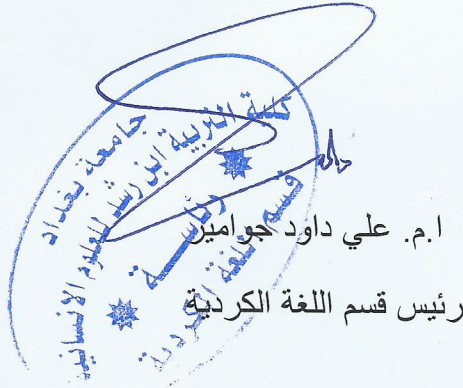 جامعة بغداد
كلية التربية ابن رشد للعلوم الانسانية
رئاسة
قسم اللغة الكردية
ا.م. علي داود جوامير
رئيس قسم اللغة الكردية